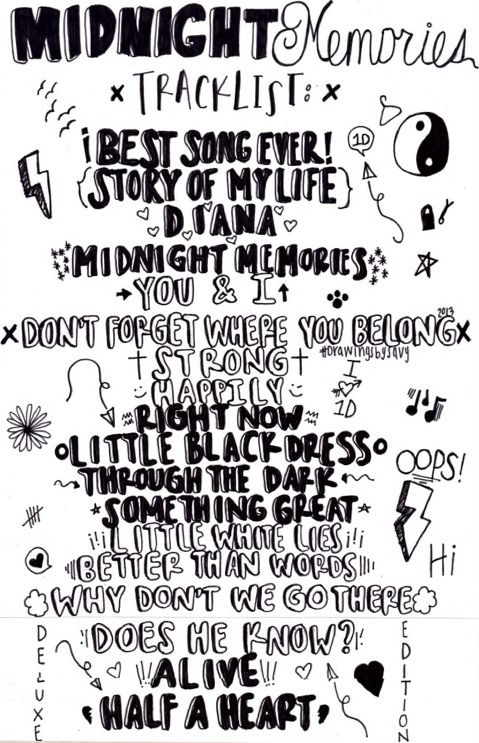 MIDNIGHT Memories
x TRACKLIST: x
1D
¡BEST SONG EVER!
{STORY OF MY LIFE}
DIANA
MIDNIGHT MEMORIES
YOU & I
2013
xDON'T FORGET WHERE YOU BELONGx
#drawingsbysavy
STRONG
I
1D
HAPPILY
RIGHT NOW
LITTLE BLACK DRESS
OOPS!
THROUGH THE DARK
SOMETHING GREAT
LITTLE WHITE LIES
Hi
BETTER THAN WORDS
WHY DON'T WE GO THERE
DOES HE KNOW?
ALIVE
HALF A HEART
DELUXE
EDITION